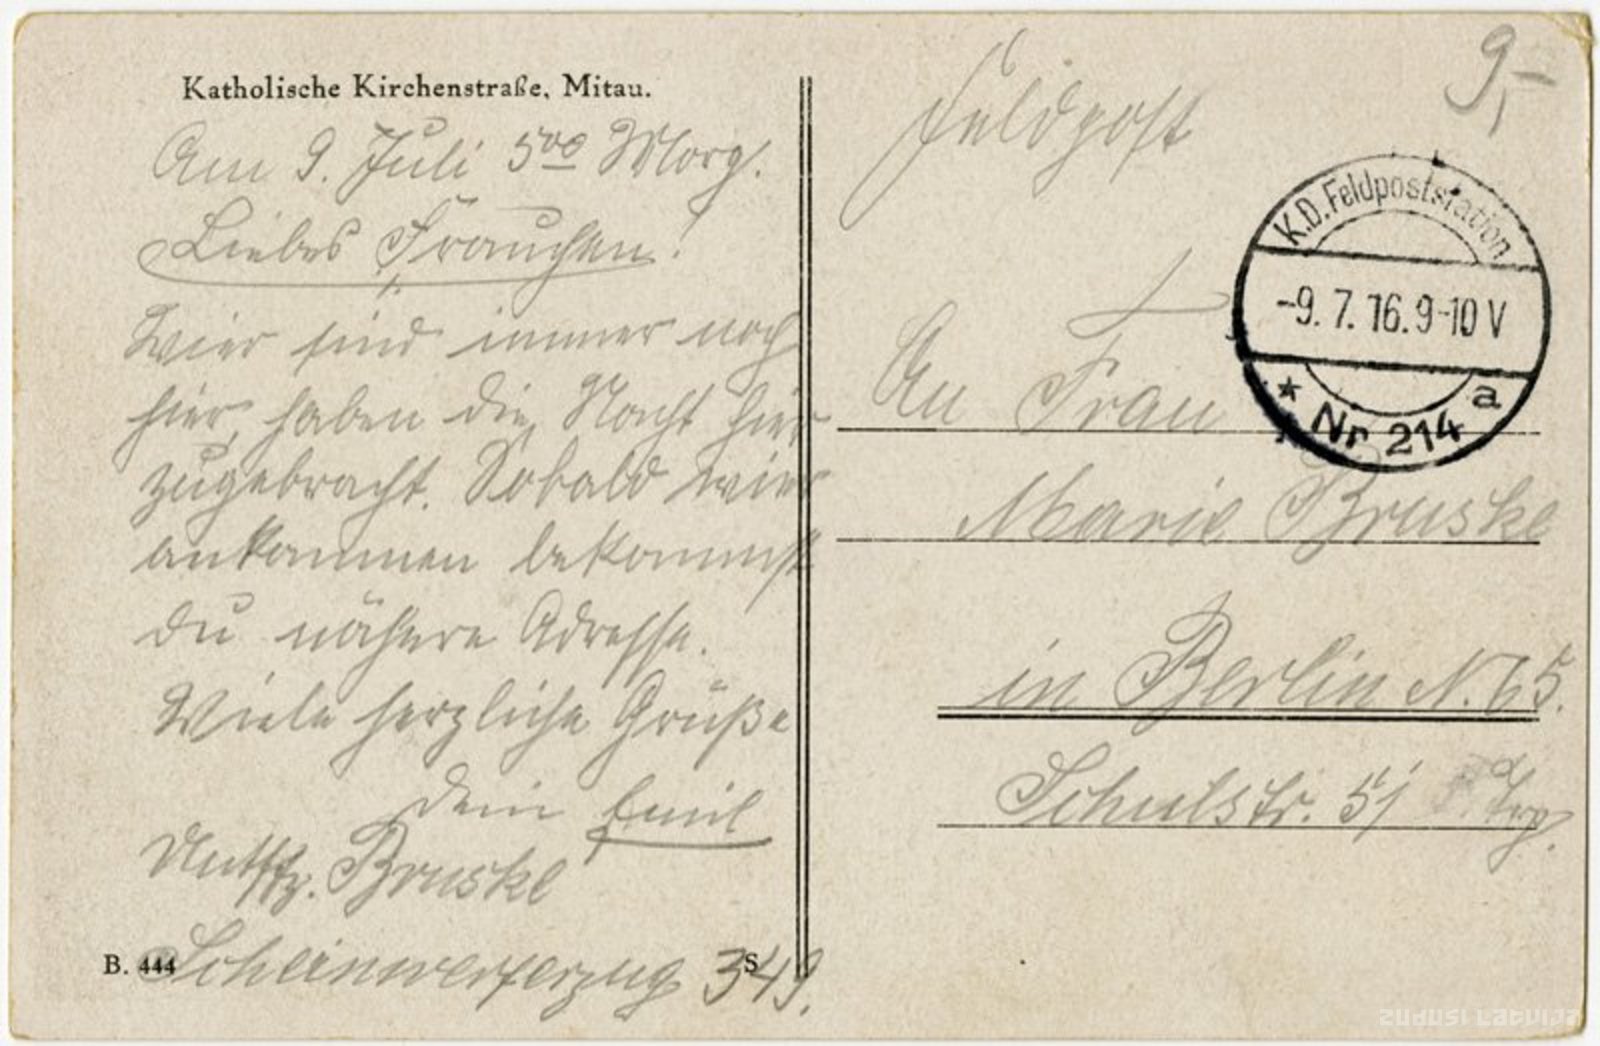 Katholische Kirchenstraße, Mitau.
Am 9. Juli 5⁰⁰ Morg.
Liebes Frauchen!
Wier sind immer noch
hier, haben die Nacht hier
zugebracht. Sobald wier
ankommen bekommst
du nähere Adresse.
Viele herzliche Grüße
dein Emil
Untffz. Bruske
Scheinwerferzug 349.
B. 444
S
Feldpost
9,-
K.D. Feldpoststation
-9. 7. 16. 9-10 V
* a
Nr 214
An Frau
Marie Bruske
in Berlin N. 65.
Schulstr. 51
zudusi Latvija